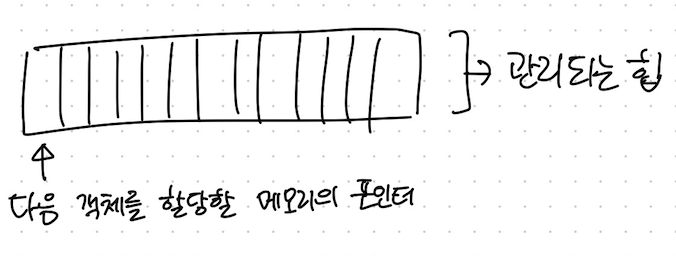 관리되는 힙
다음 객체를 할당할 메모리의 포인터